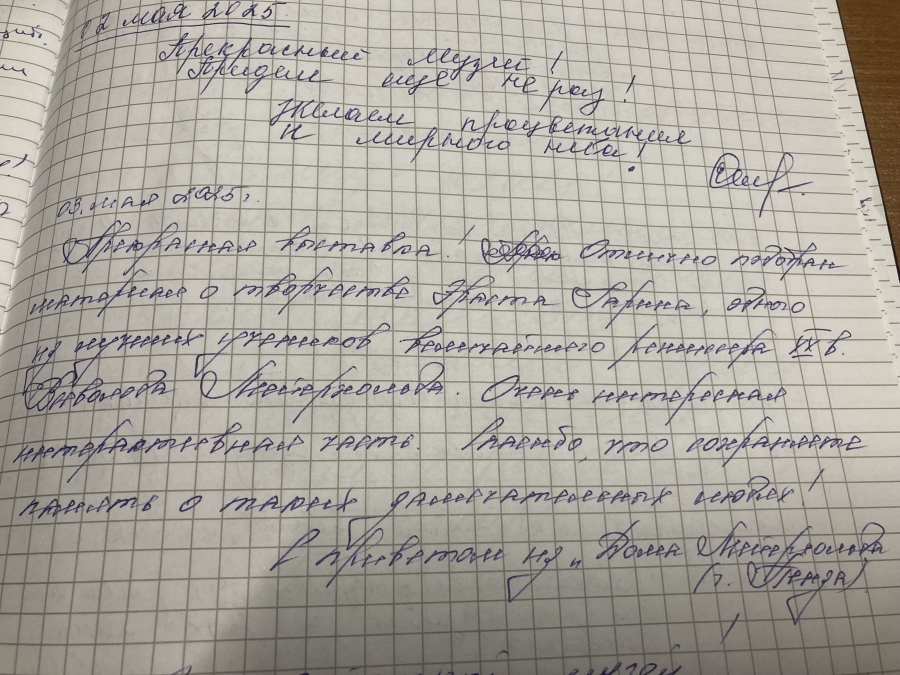 02 мая 2025.
Прекрасный музей!
Придем ещё не раз!
Желаем процветания
и мирного неба!
03. мая 2025г.
Прекрасная выставка! Отлично подобран
материал о творчестве Эраста Гарина, одного
из лучших учеников величайшего режиссера XX в.
Всеволода Мейерхольда. Очень интересная
интерактивная часть. Спасибо, что сохраняете
память о таких замечательных людях!
С приветом из „Дома Мейерхольда
(г. Пенза)